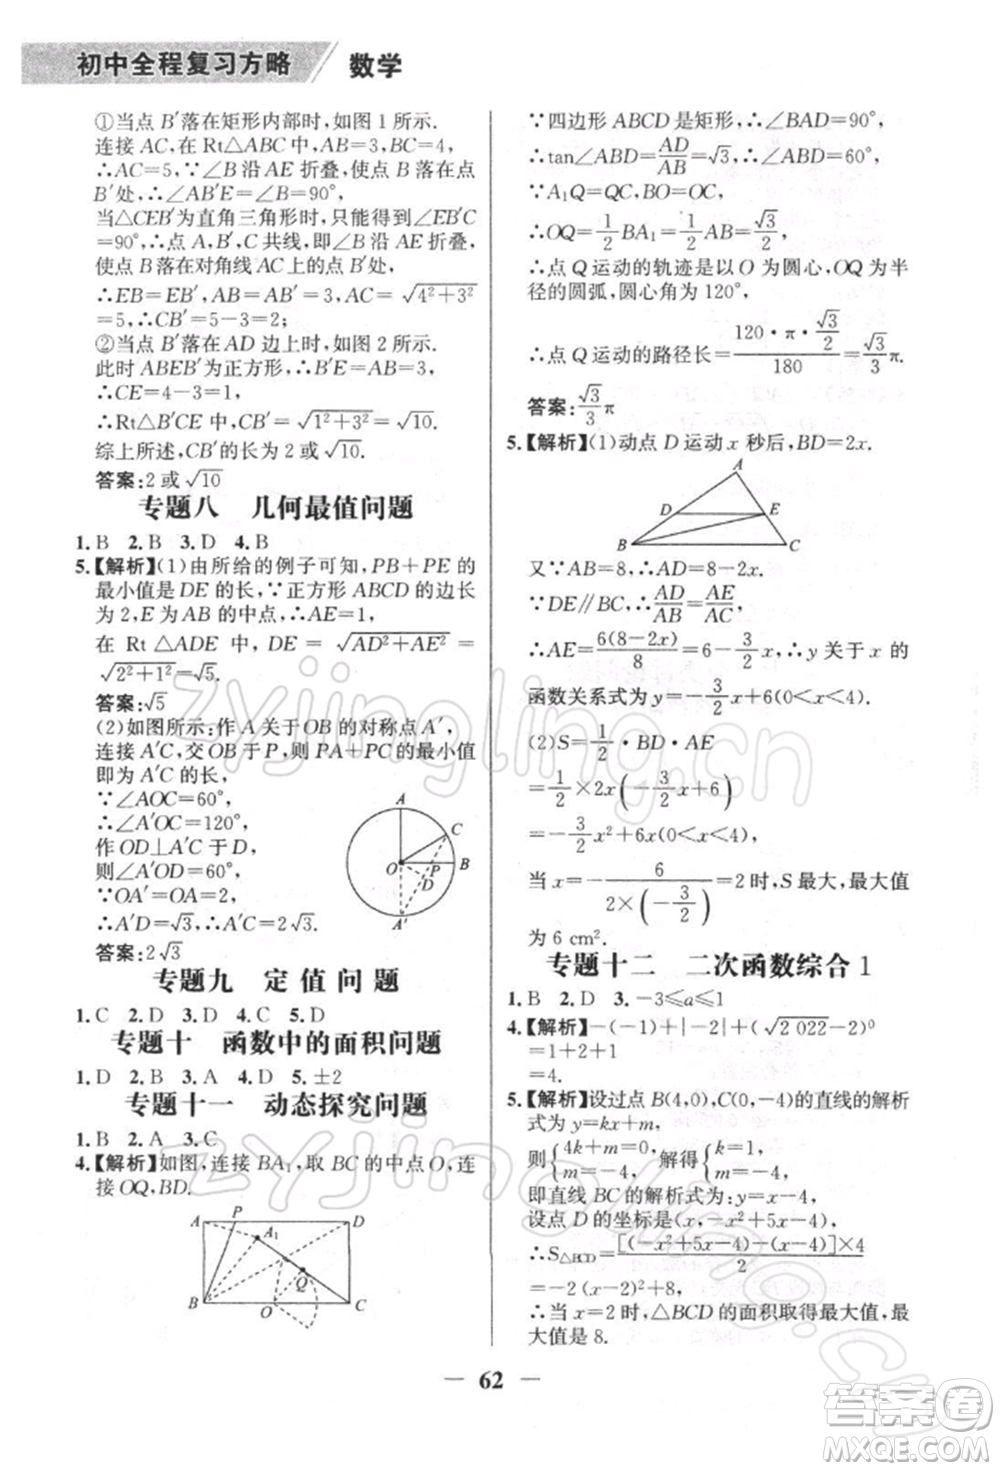 初中全程复习方略 数学
①当点 B′落在矩形内部时,如图 1 所示.
连接 AC,在 Rt△ABC 中,AB=3,BC=4,
∴AC=5,∵∠B 沿 AE 折叠,使点 B 落在点
B′处,∴∠AB′E=∠B=90°,
当△CEB′为直角三角形时,只能得到∠EB′C
=90°,∴点 A,B′,C 共线,即∠B 沿 AE 折叠,
使点 B 落在对角线 AC 上的点 B′处,
∴EB=EB′,AB′=AB=3,AC=√(4²+3²)
=5,∴CB′=5-3=2;
②当点 B′落在 AD 边上时,如图 2 所示.
此时 ABEB′为正方形,∴BE=AB=3,
∴CE=4-3=1,
∴Rt△B′CE 中,CB′=√(1²+3²)=√10.
综上所述,CB′的长为 2 或√10.
答案:2 或√10
专题八 几何最值问题
1. B 2. B 3. D 4. B
5.【解析】(1)由所给的例子可知,PB+PE 的
最小值是 DE 的长,∵正方形 ABCD 的边长
为 2,E 为 AB 的中点,∴AE=1,
在 Rt △ADE 中,DE=√(AD²+AE²)=
√(2²+1²)=√5.
答案:√5
(2)如图所示:作 A 关于 OB 的对称点 A′,
连接 A′C,交 OB 于 P,则 PA+PC 的最小值
即为 A′C 的长,
∵∠AOC=60°,
∴∠A′OC=120°,
作 OD⊥A′C 于 D,
则∠A′OD=60°,
∵OA′=OA=2,
∴A′D=√3,∴A′C=2√3.
A C O P B D A′
答案:2√3
专题九 定值问题
1. C 2. D 3. D 4. C 5. D
专题十 函数中的面积问题
1. D 2. B 3. A 4. D 5. ±2
专题十一 动态探究问题
1. B 2. A 3. C
4.【解析】如图,连接 BA₁,取 BC 的中点 O,连
接 OQ,BD.
A P D A₁ Q B O C
∵四边形 ABCD 是矩形,∴∠BAD=90°,
∴tan∠ABD=AD/AB=√3,∴∠ABD=60°,
∵A₁Q=QC,BO=OC,
∴OQ=1/2 BA₁=1/2 AB=√3/2,
∴点 Q 运动的轨迹是以 O 为圆心,OQ 为半
径的圆弧,圆心角为 120°,
∴点 Q 运动的路径长=(120·π·√3/2)/180=√3/3 π.
答案:√3/3 π
5.【解析】(1)动点 D 运动 x 秒后,BD=2x.
A D E B C
又∵AB=8,∴AD=8-2x.
∵DE∥BC,∴AD/AB=AE/AC,
∴AE=6(8-2x)/8=6-3/2 x,∴y 关于 x 的
函数关系式为 y=-3/2 x+6(0<x<4).
(2)S=1/2·BD·AE
=1/2×2x(-3/2 x+6)
=-3/2 x²+6x(0<x<4),
当 x=-6/(2×(-3/2))=2 时,S 最大,最大值
为 6 cm².
专题十二 二次函数综合 1
1. B 2. D 3. -3≤a≤1
4.【解析】-(-1)+|-2|+(√2 022-2)⁰
=1+2+1
=4.
5.【解析】设过点 B(4,0),C(0,-4)的直线的解析
式为 y=kx+m,
则{4k+m=0, m=-4, 解得{k=1, m=-4,
即直线 BC 的解析式为:y=x-4,
设点 D 的坐标是(x,-x²+5x-4),
∴S△BCD=[(-x²+5x-4)-(x-4)]×4/2
=-2(x-2)²+8,
∴当 x=2 时,△BCD 的面积取得最大值,最
大值是 8.
— 62 —
zyjingling.cn
zyjingling.cn
答案圈
MXQE.COM